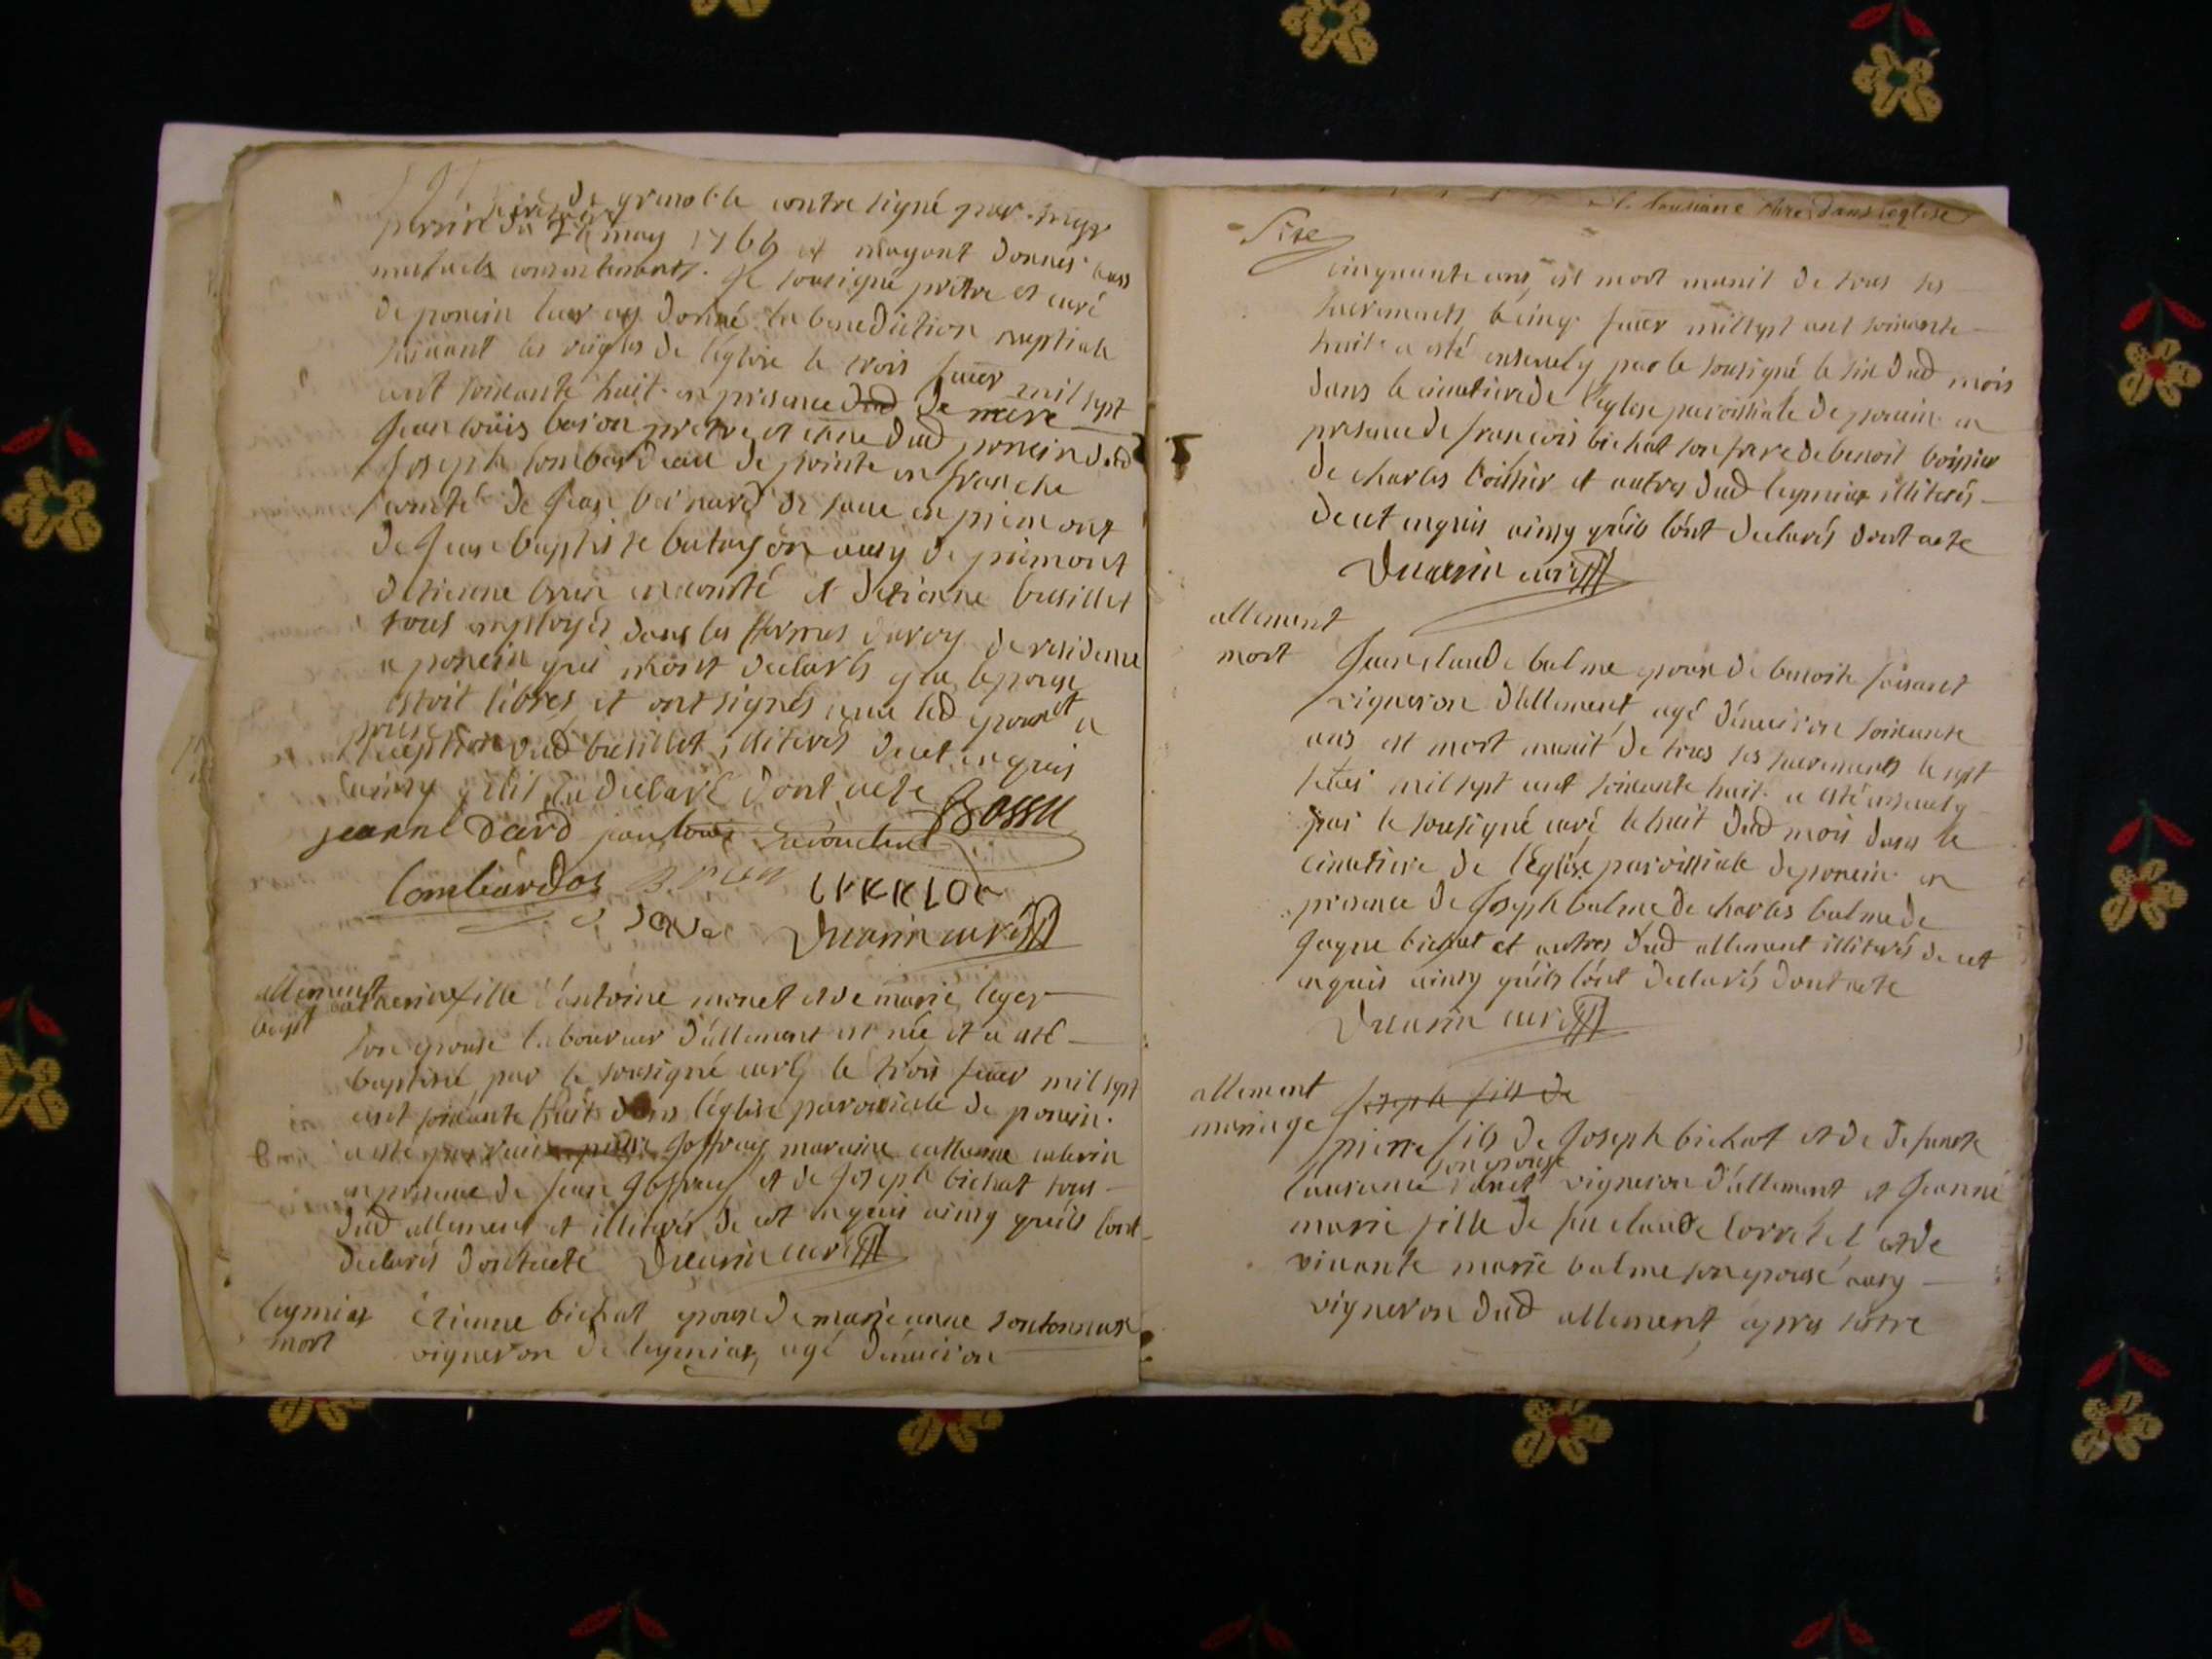 de grenoble contre signé par
secretaire
perrin du 26 may 1766 et m'ayant donnés leurs
mutuels consentements. Je sousigné prêtre et curé
de poncin leur ay donné la benediction nuptiale
suivant les reigles de l'eglise le trois feuer mil sept
cent soixante huit en presence de mere
Jean louis prêtre et dud poncin dud
Joseph lombard de pointe en franche
comté de Jean bernard de en piemont
de Jean baptiste aussy de piemont
detienne brun en comté et detienne busillet
tous employés dans les ffermes du roy de residence
a poncin qui m'ont declarés que lepouse
estoit libres et ont signés avec led epoux et a
pouse
l'exception dud busillet illiterés de cet enquis
ainsy qu'il l'a declaré dont acte Bossu
jeanne Dard jean louis
Lombardos
Duarin curé
allement
bapt
catherine fille d'antoine monet et de marie leger
son epouse laboureur d'allement est née et a esté
baptisé par le sousigné curé le trois feuer mil sept
cent soixante huit dans l'église paroissiale de poncin.
a esté parrain Joffray maraine catherine
en presence de Jean Joffray et de Joseph bichat tous
dud allement et illiterés de cet enquis ainsy qu'ils l'ont
declarés dont acte Duarin curé
leymiat
mort
Etienne bichat epoux de marie anne
vigneron de leymiat, agé d'enuiron
Sixe
cinquante ans, est mort munit de tous ses
sacrements le cinq feuer mil sept cent soixante
huit a esté enseuely par le sousigné le six dud mois
dans le cimetiere de l'eglise paroissiale de poncin en
presence de francois bichat son frere de benoit boissier
de charles boissier et autres dud leymiat illiterés
de cet enquis ainsy qu'ils l'ont declarés dont acte
Duarin curé
allement
mort
Jean claude balme epoux de benoite foisant
vigneron d'allement, agé d'enuiron soixante
ans est mort munit de tous ses sacrements le sept
feuer mil sept cent soixante huit. a esté enseuely
par le sousigné curé le huit dud mois dans le
cimetiere de l'Eglise paroissiale de poncin en
presence de Joseph balme de charles balme de
Jaque bichat et autres dud allement illiterés de cet
enquis ainsy qu'ils l'ont declarés dont acte
Duarin curé
allement
mariage
Joseph fils de
pierre fils de Joseph bichat et de defuncte
son epouse
laurence vigneron d'allement et Jeanne
marie fille de feu claude et de
viuante marie balme son epouse aussy
vigneron dud allement, apres